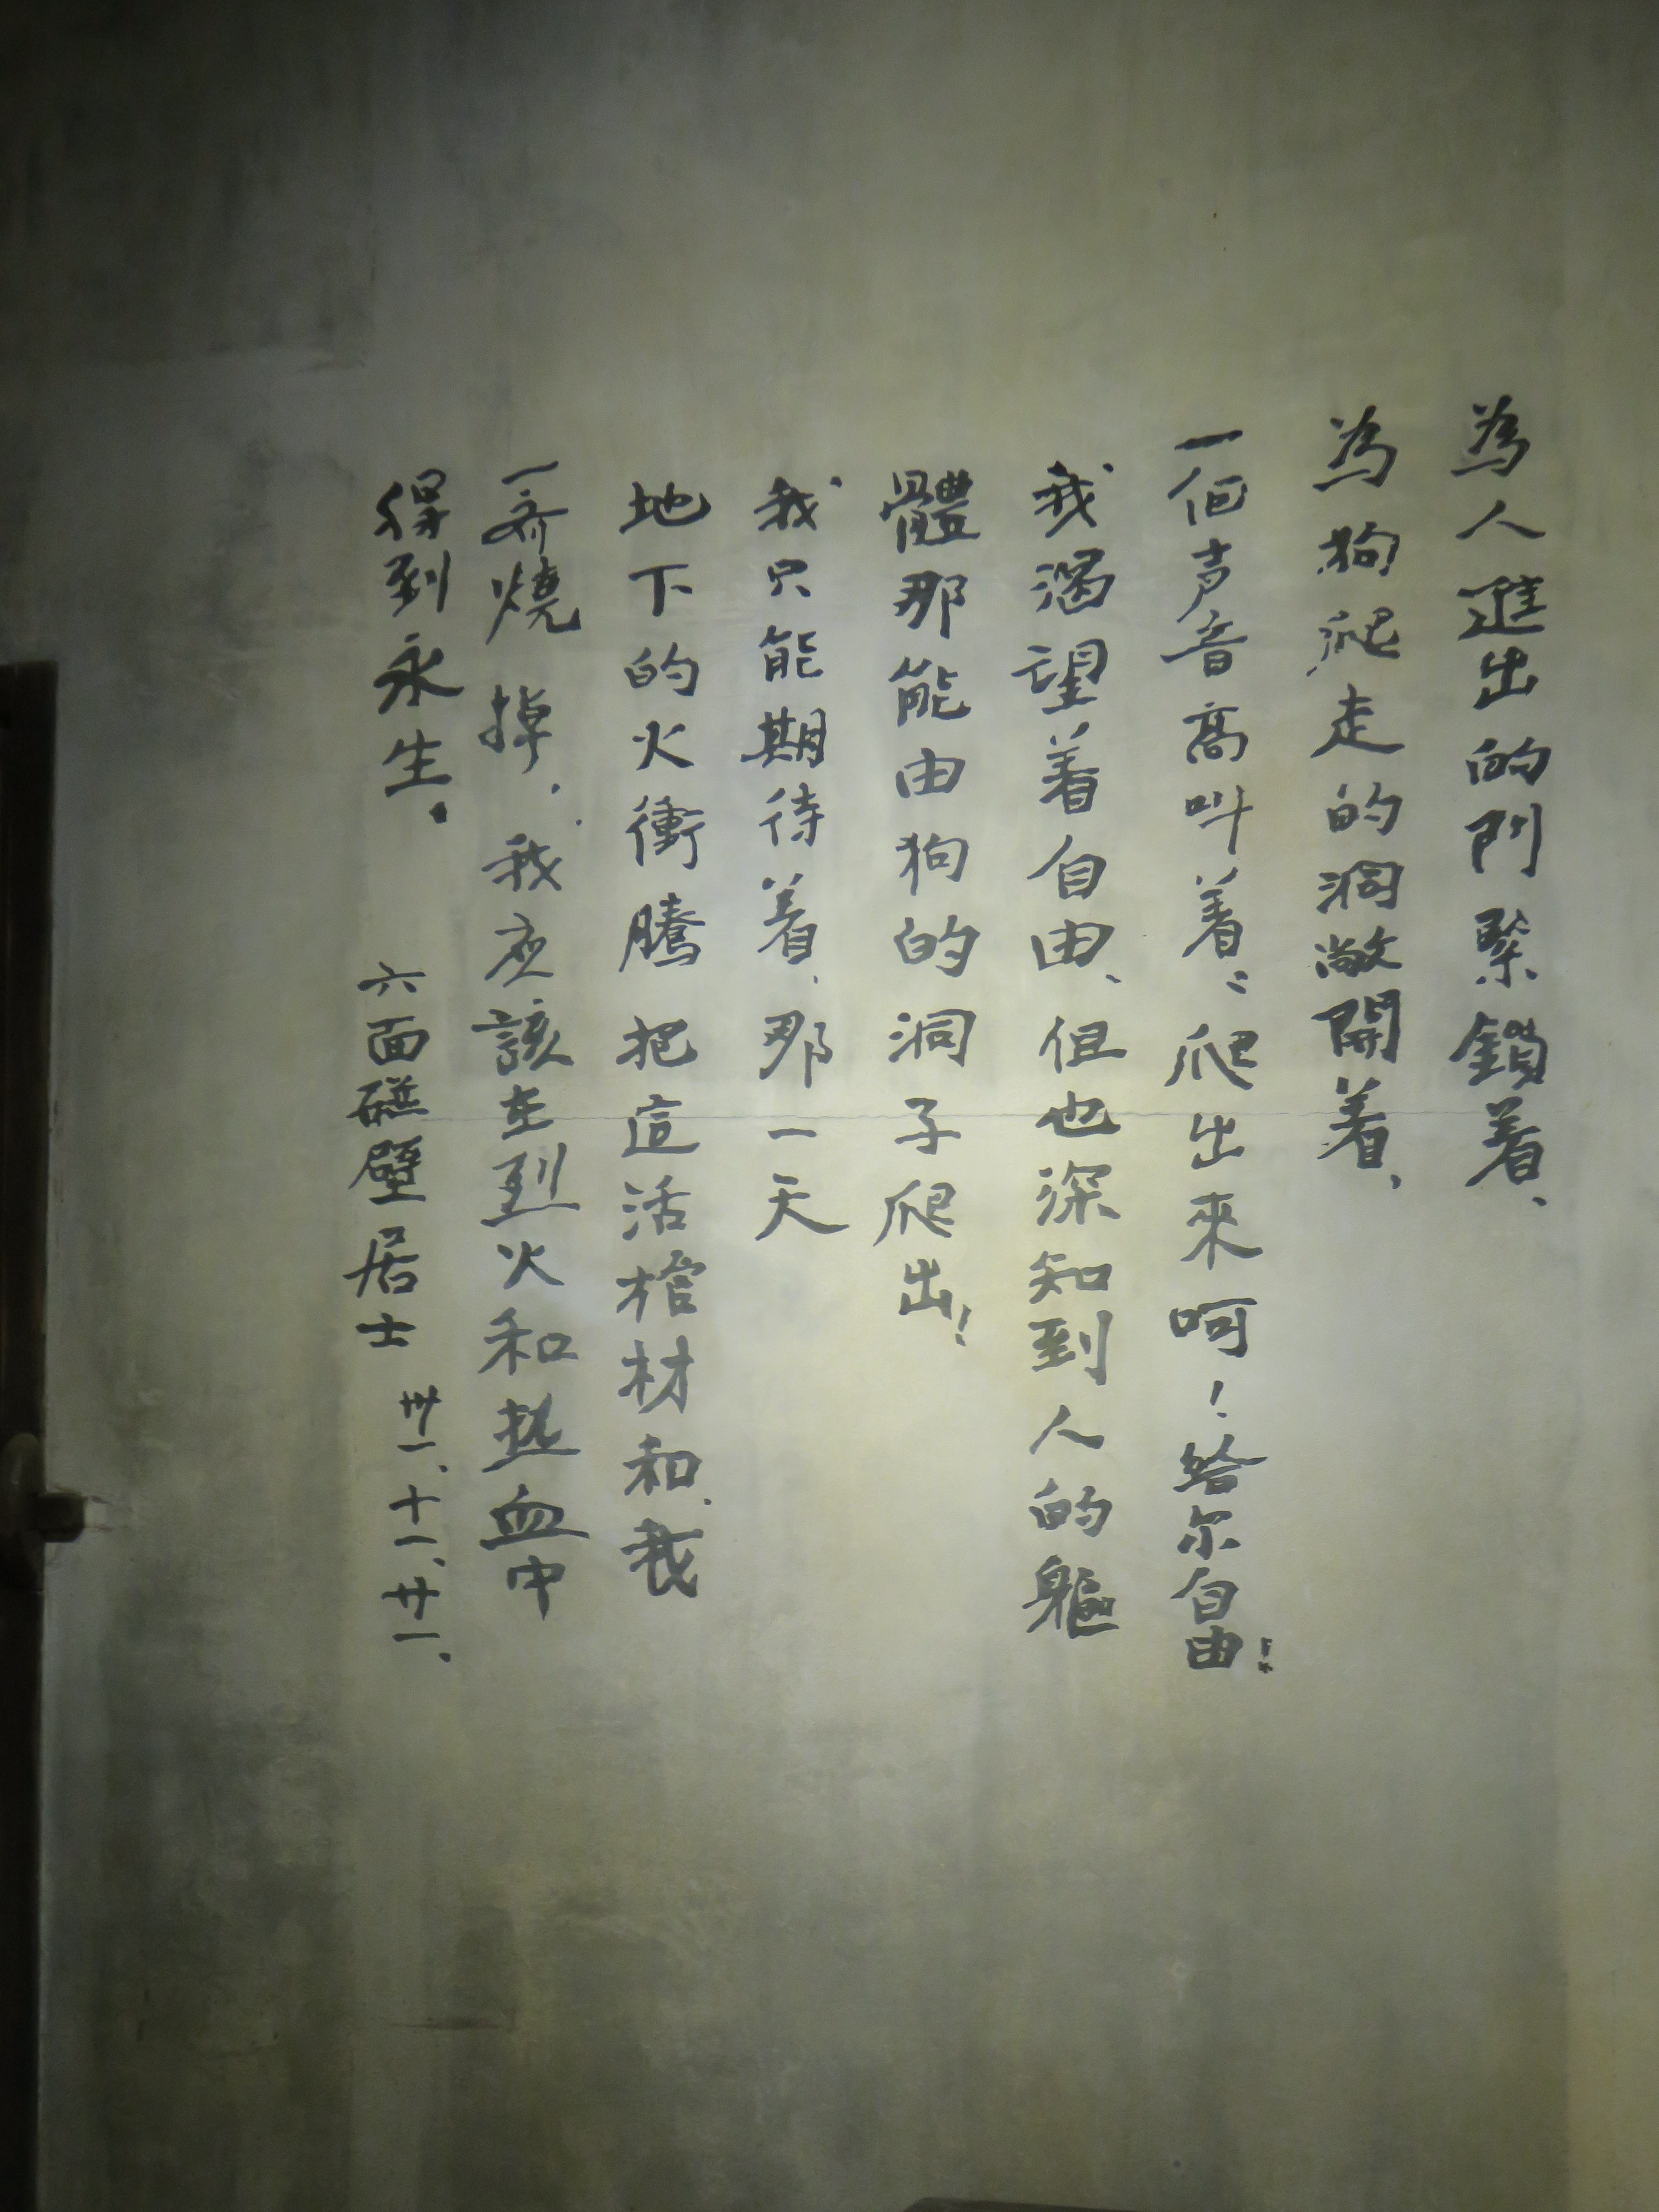 為人進出的門緊鎖着、
為狗爬走的洞敞開着、
一個声音高叫着:爬出來呵!給尔自由!
我渴望着自由、但也深知到人的軀
體那能由狗的洞子爬出!
我只能期待着、那一天
地下的火衝騰把這活棺材和我
一齐燒掉.我应該在烈火和热血中
得到永生.
六面碰壁居士 卅一、十一、廿一、